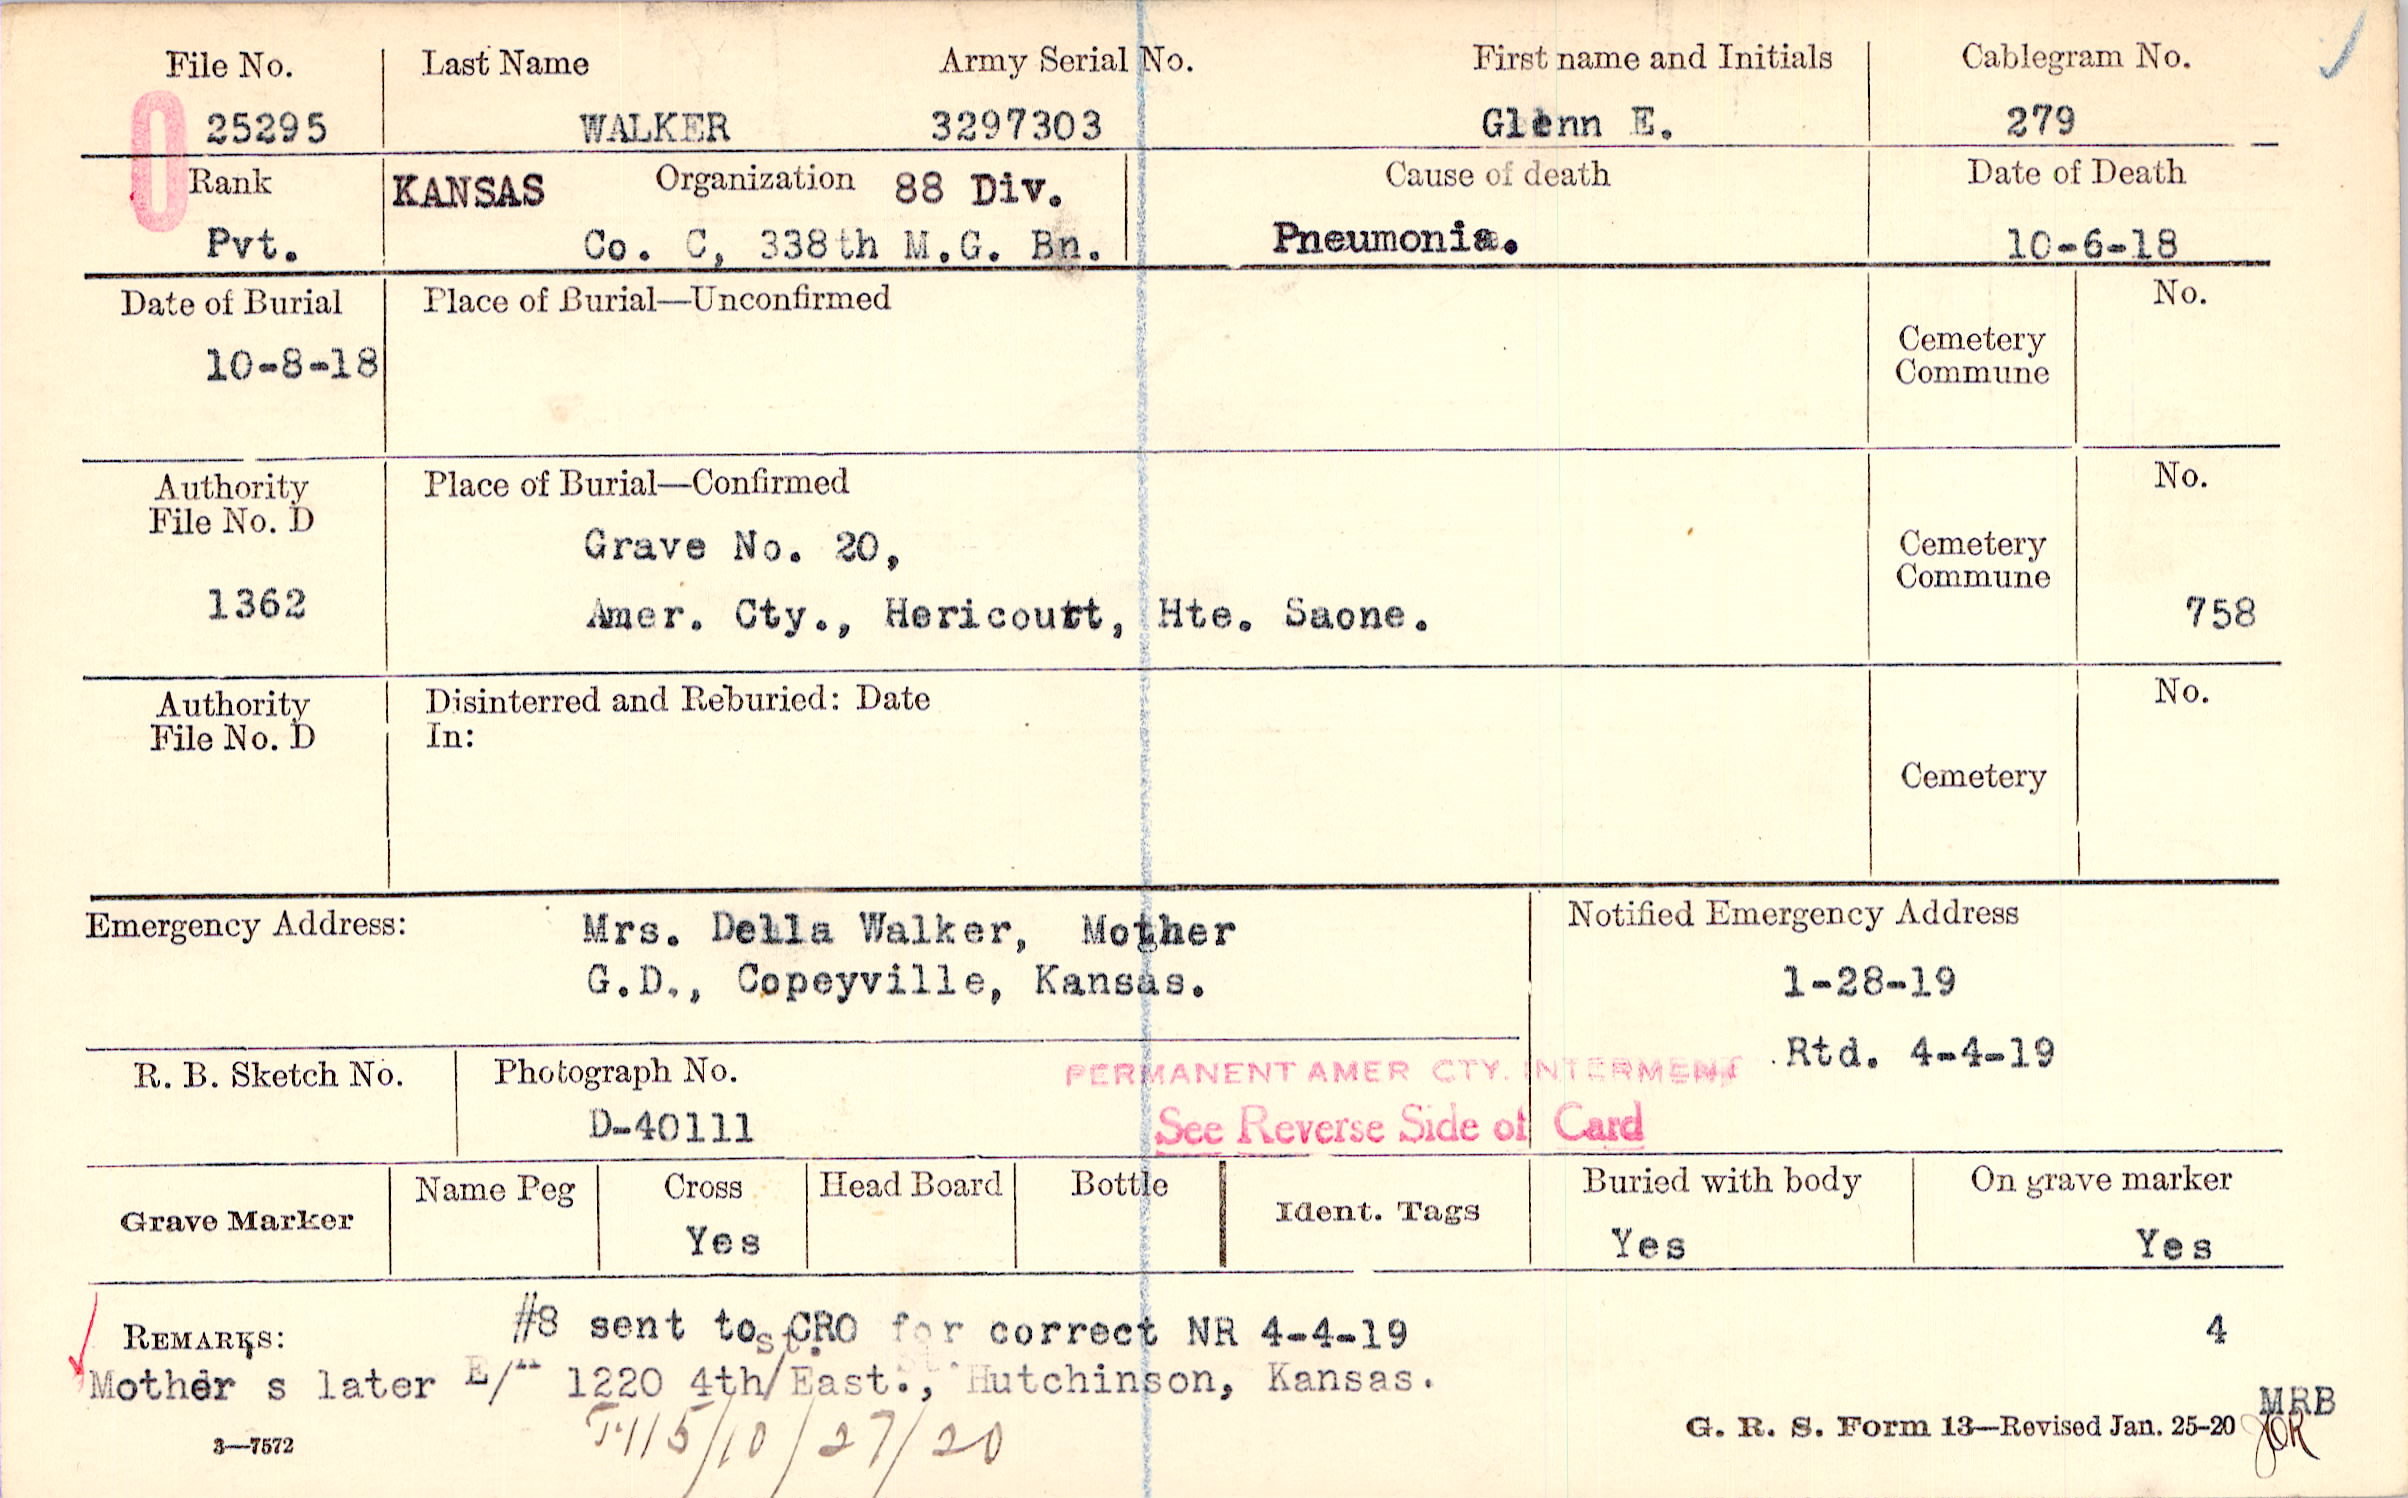 File No. Last Name Army Serial No. First name and Initials Cablegram No.
25295 WALKER 3297303 Glenn E. 279
Rank KANSAS Organization 88 Div. Cause of death Date of Death
Pvt. Co. C, 338th M.G. Bn. Pneumonia. 10-6-18
Date of Burial Place of Burial—Unconfirmed No.
10-8-18 Cemetery
Commune
Authority Place of Burial—Confirmed No.
File No. D
Grave No. 20, Cemetery
Commune
1362 Amer. Cty., Hericourt, Hte. Saone. 758
Authority Disinterred and Reburied: Date No.
File No. D In:
Cemetery
Emergency Address: Mrs. Della Walker, Mother Notified Emergency Address
G.D., Copeyville, Kansas. 1-28-19
Rtd. 4-4-19
R. B. Sketch No. Photograph No. PERMANENT AMER CTY. INTERMENT
D-40111 See Reverse Side of Card
Grave Marker Name Peg Cross Head Board Bottle Ident. Tags Buried with body On grave marker
Yes Yes Yes
REMARKS: #8 sent to CRO for correct NR 4-4-19 4
st.
Mother s later E/" 1220 4th/East., Hutchinson, Kansas.
MRB
3—7572 /10/27/20 G. R. S. Form 13—Revised Jan. 25-20